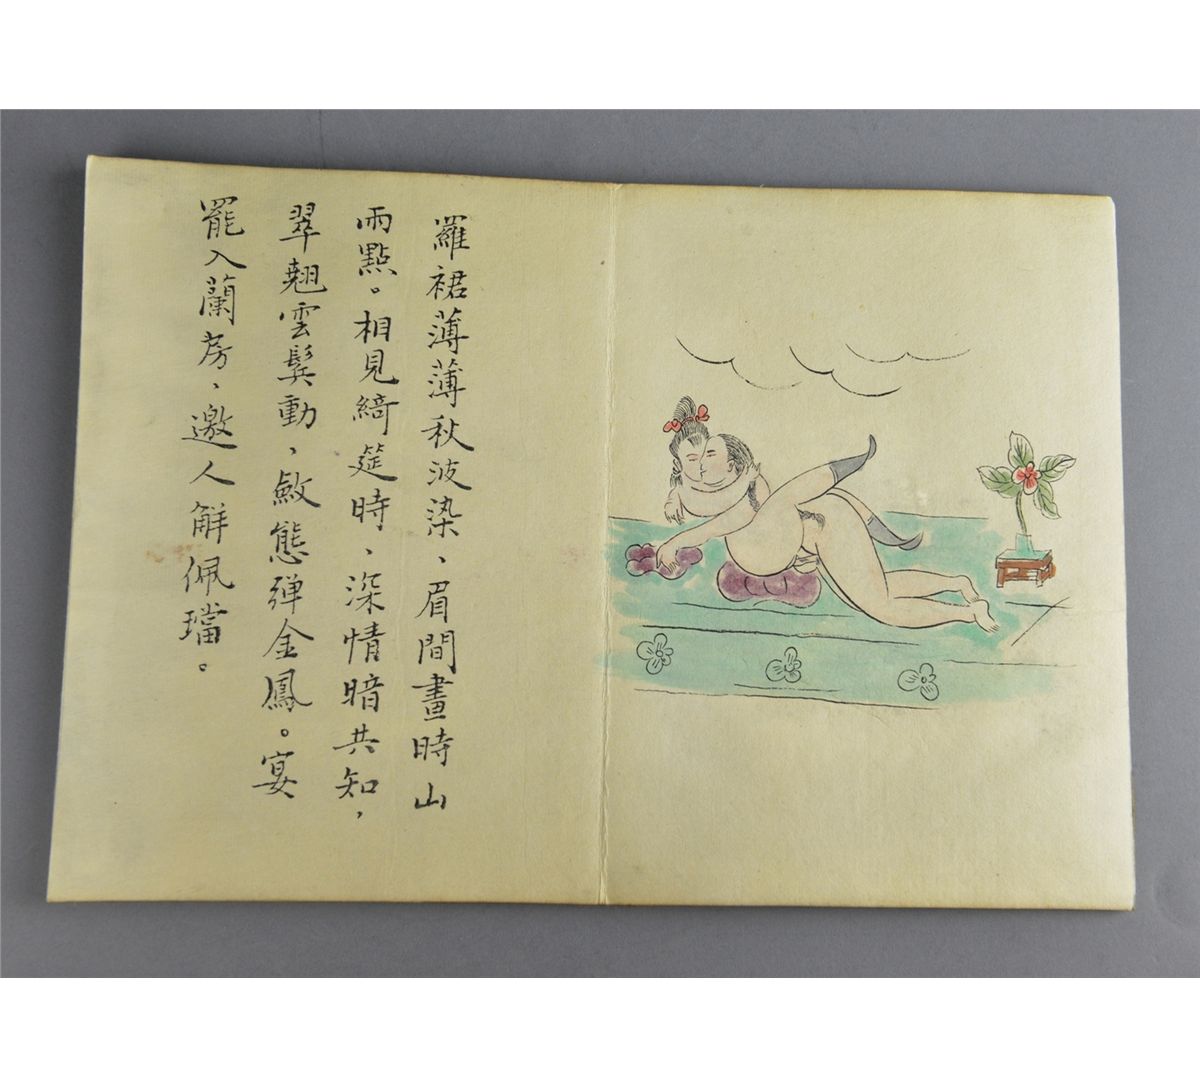 羅裙薄薄秋波染、眉間畫時山
兩點。相見綺筵時、深情暗共知，
翠翹雲鬓動、斂態弹金鳳。宴
罷入蘭房、邀人解佩璫。